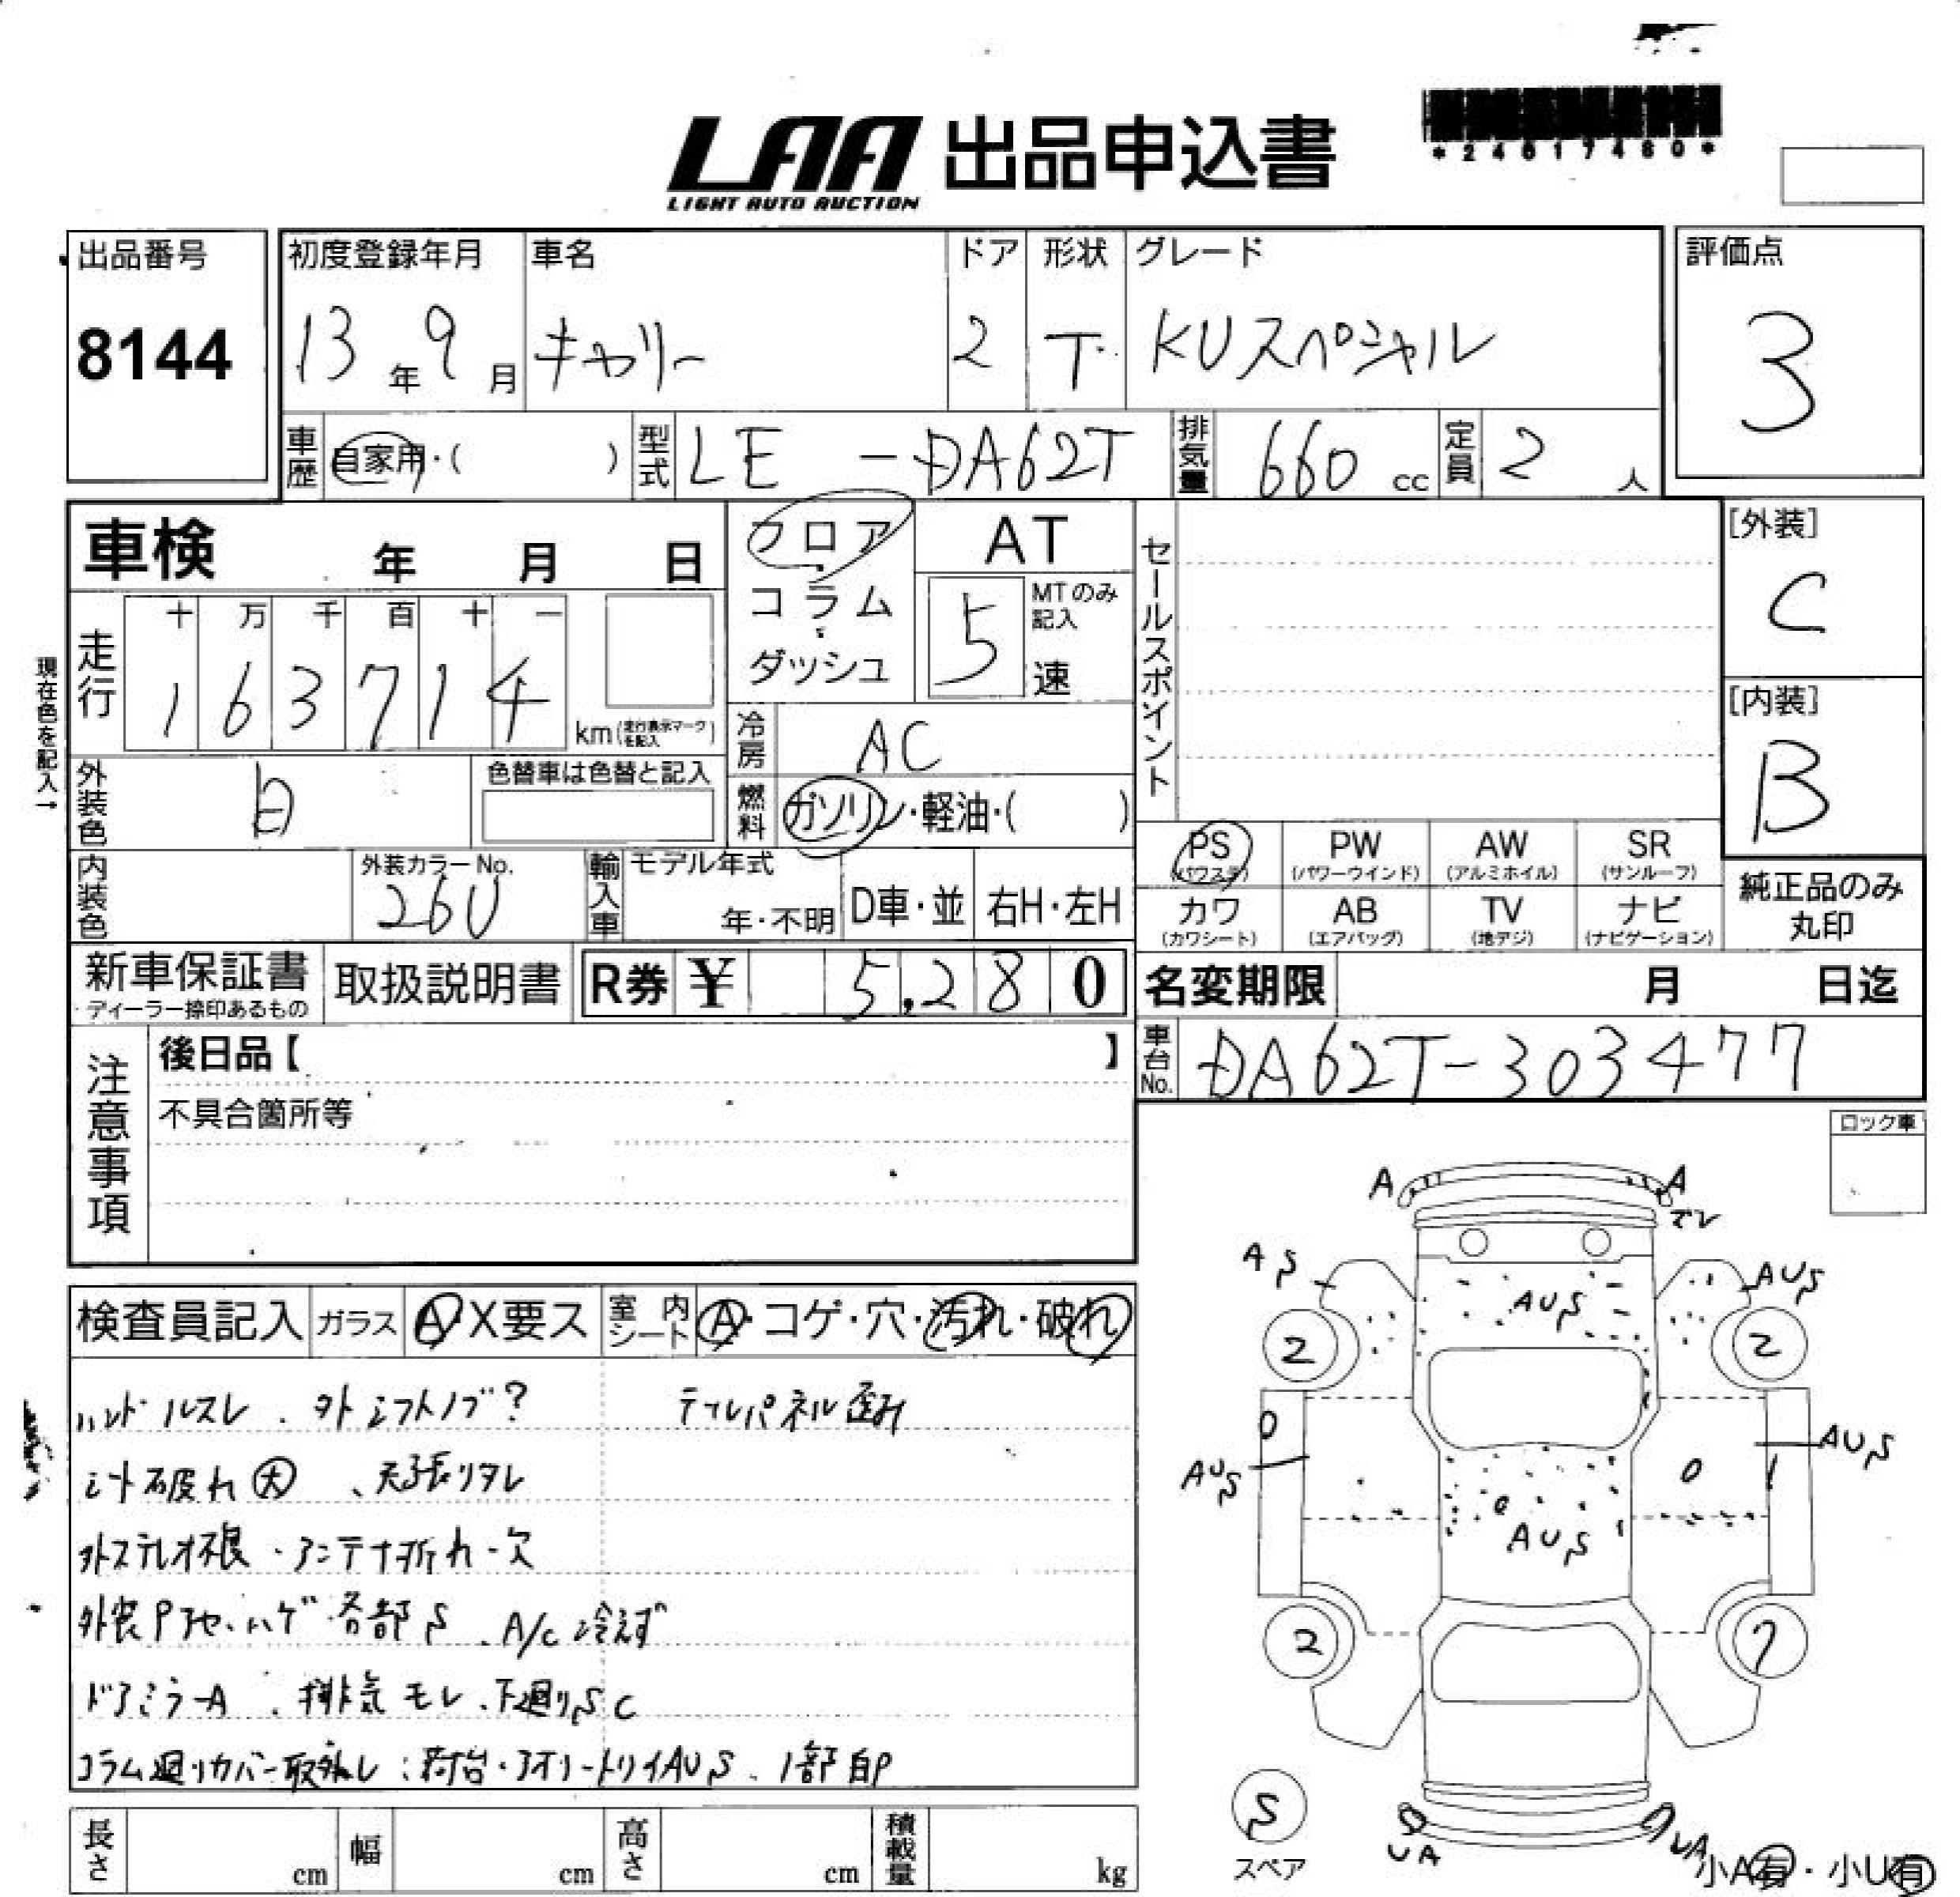 *24617480*
LAA 出品申込書
LIGHT AUTO AUCTION
出品番号 8144
初度登録年月 13年9月
車名 キャリー
ドア 2
形状 T
グレード KUスペシャル
評価点 3
車歴 自家用・( )
型式 LE-DA62T
排気量 660 cc
定員 2 人
車検 年 月 日
フロア・コラム・ダッシュ
AT
5 MTのみ記入 速
セールスポイント
[外装] C
[内装] B
現在色を記入→
走行 十 万 千 百 十 一
1 6 3 7 1 4 km(走行表示マークを記入)
冷房 AC
外装色 白
色替車は色替と記入
燃料 ガソリン・軽油・( )
内装色
外装カラーNo. 26U
輸入車 モデル年式 年・不明 D車・並 右H・左H
PS (パワステ) PW (パワーウインド) AW (アルミホイル) SR (サンルーフ)
カワ (カワシート) AB (エアバッグ) TV (地デジ) ナビ (ナビゲーション)
純正品のみ丸印
新車保証書 ディーラー捺印あるもの
取扱説明書
R券 ¥ 5,280
名変期限 月 日迄
車台No. DA62T-303477
注意事項
後日品【 】
不具合箇所等
ロック車
検査員記入 ガラス A・X要ス 室内シート A・コゲ・穴・汚れ・破れ
ハンドルスレ、外シフトノブ? テールパネル歪み
シート破れ大、天張リタレ
外ステレオ不良・アンテナ折れ・欠
外装Pヤケ、ハゲ・各部S、A/C冷えず
ドアミラーA、排気モレ、下廻りSC
コラム廻りカバー取外し:荷台・アオリ・トリイAUS、1部自P
A A
ズレ
AS AUS
AUS
2 2
AUS AUS
AUS
2
S
スペア
UA UA
小A有・小U有
長さ cm 幅 cm 高さ cm 積載量 kg